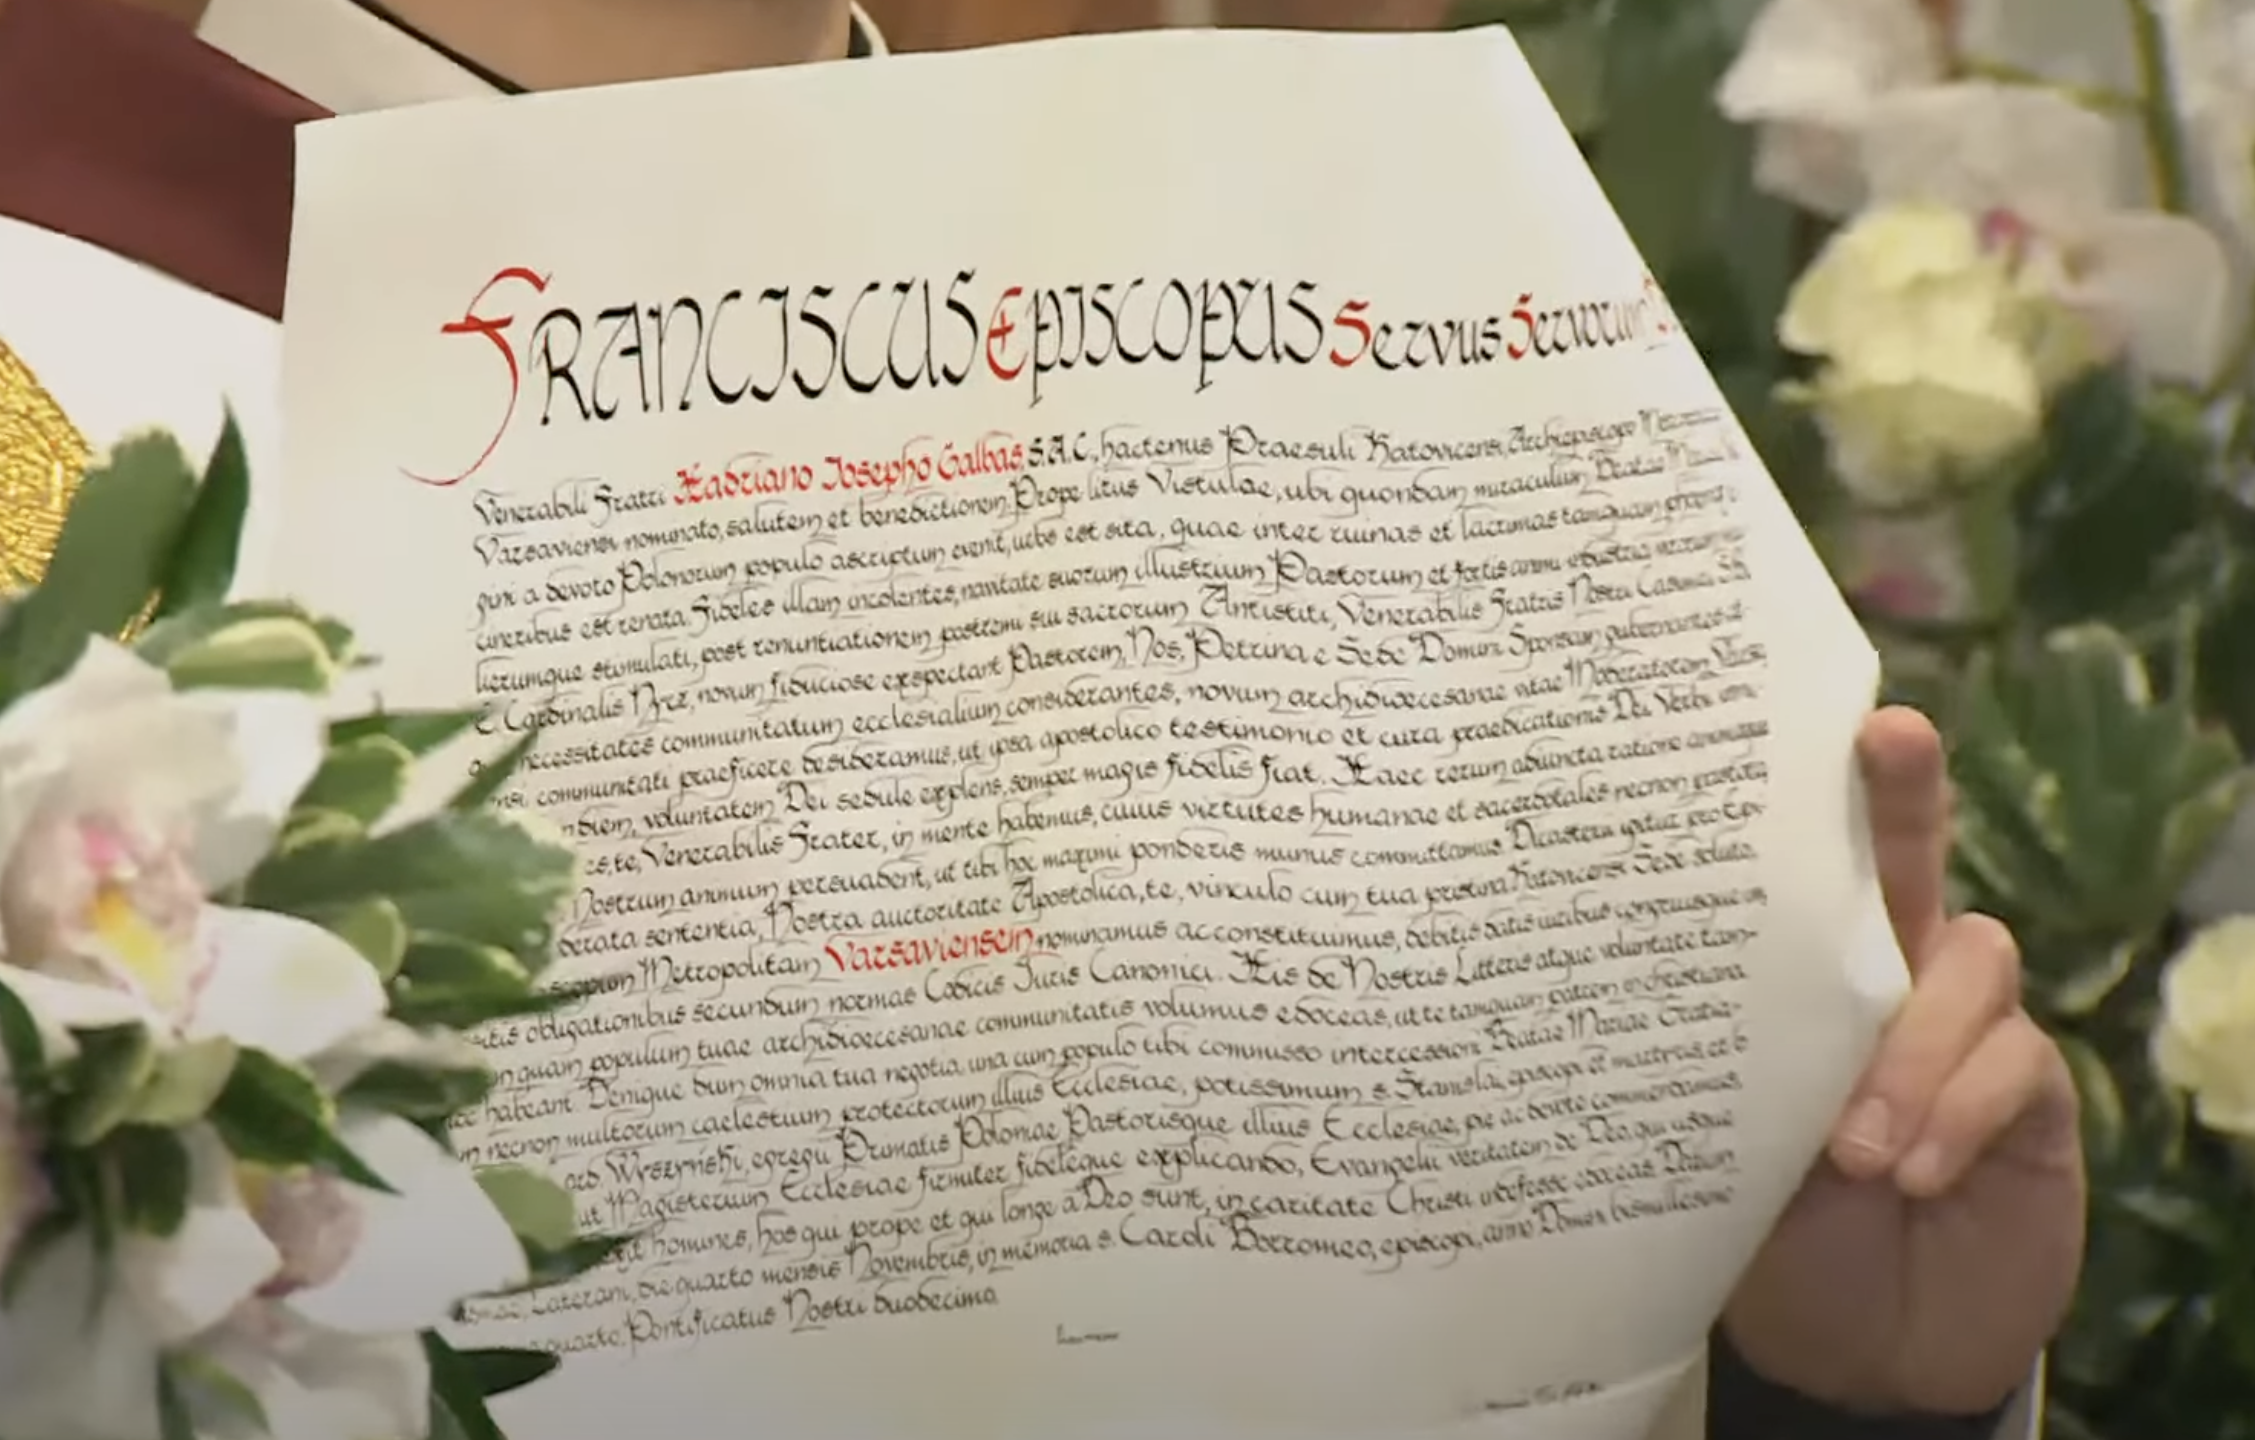 FRANCISCUS EPISCOPUS Servus Servorum
Venerabili Fratri Hadriano Iosepho Galbas, S.A.C., hactenus Praesuli Katovicensi, Archiepiscopo
Varsaviensi nominato, salutem et benedictionem. Prope litus Vistulae, ubi quondam miraculum Beatae
gini a devoto Polonorum populo ascriptum evenit, urbs est sita, quae inter ruinas et lacrimas tamquam
cineribus est renata. Fideles illam incolentes, navitate suorum illustrium Pastorum et fortis animi
lierumque stimulati, post renuntiationem postremi sui sacrorum Antistiti, Venerabilis Fratris Nostri Casimiri
S. R. E. Cardinalis Nycz, novum fiduciose exspectant Pastorem. Nos, Petrina e Sede Domini Sponsam gubernantes
necessitates communitatum ecclesialium considerantes, novum archidioecesanae vitae Moderatorem
communitati praeficere desideramus, ut ipsa apostolico testimonio et cura praedicationis Dei Verbi
voluntatem Dei sedule explens, semper magis fidelis fiat. Haec rerum adiuncta ratione
te, Venerabilis Frater, in mente habemus, cuius virtutes humanae et sacerdotales necnon
Nostrum animum persuadent, ut tibi hoc maximi ponderis munus committamus. Dicasterii igitur pro Epi-
derata sententia, Nostra auctoritate Apostolica, te, vinculo cum tua pristina Katovicensi Sede soluto,
scopum Metropolitam Varsaviensem nominamus ac constituimus, debitis datis iuribus congruisque
obligationibus secundum normas Codicis Iuris Canonici. His de Nostris Litteris atque voluntate
quam populum tuae archidioecesanae communitatis volumus edoceas, ut te tamquam patrem in christiana
habeant. Denique dum omnia tua negotia, una cum populo tibi commisso intercessioni Beatae Mariae Gratia-
necnon multorum caelestium protectorum illius Ecclesiae, potissimum s. Stanislai, episcopi et martyris, et b.
Wyszyński, egregii Primatis Poloniae Pastorisque illius Ecclesiae, pie ac devote commendamus,
ut Magisterium Ecclesiae firmiter fideleque explicando, Evangelii veritatem de Deo, qui usque
homines, hos qui prope et qui longe a Deo sunt, in caritate Christi indefesse edoceas. Datum
Laterani, die quarto mensis Novembris, in memoria s. Caroli Borromeo, episcopi, anno Domini bismillesimo
quarto, Pontificatus Nostri duodecimo.